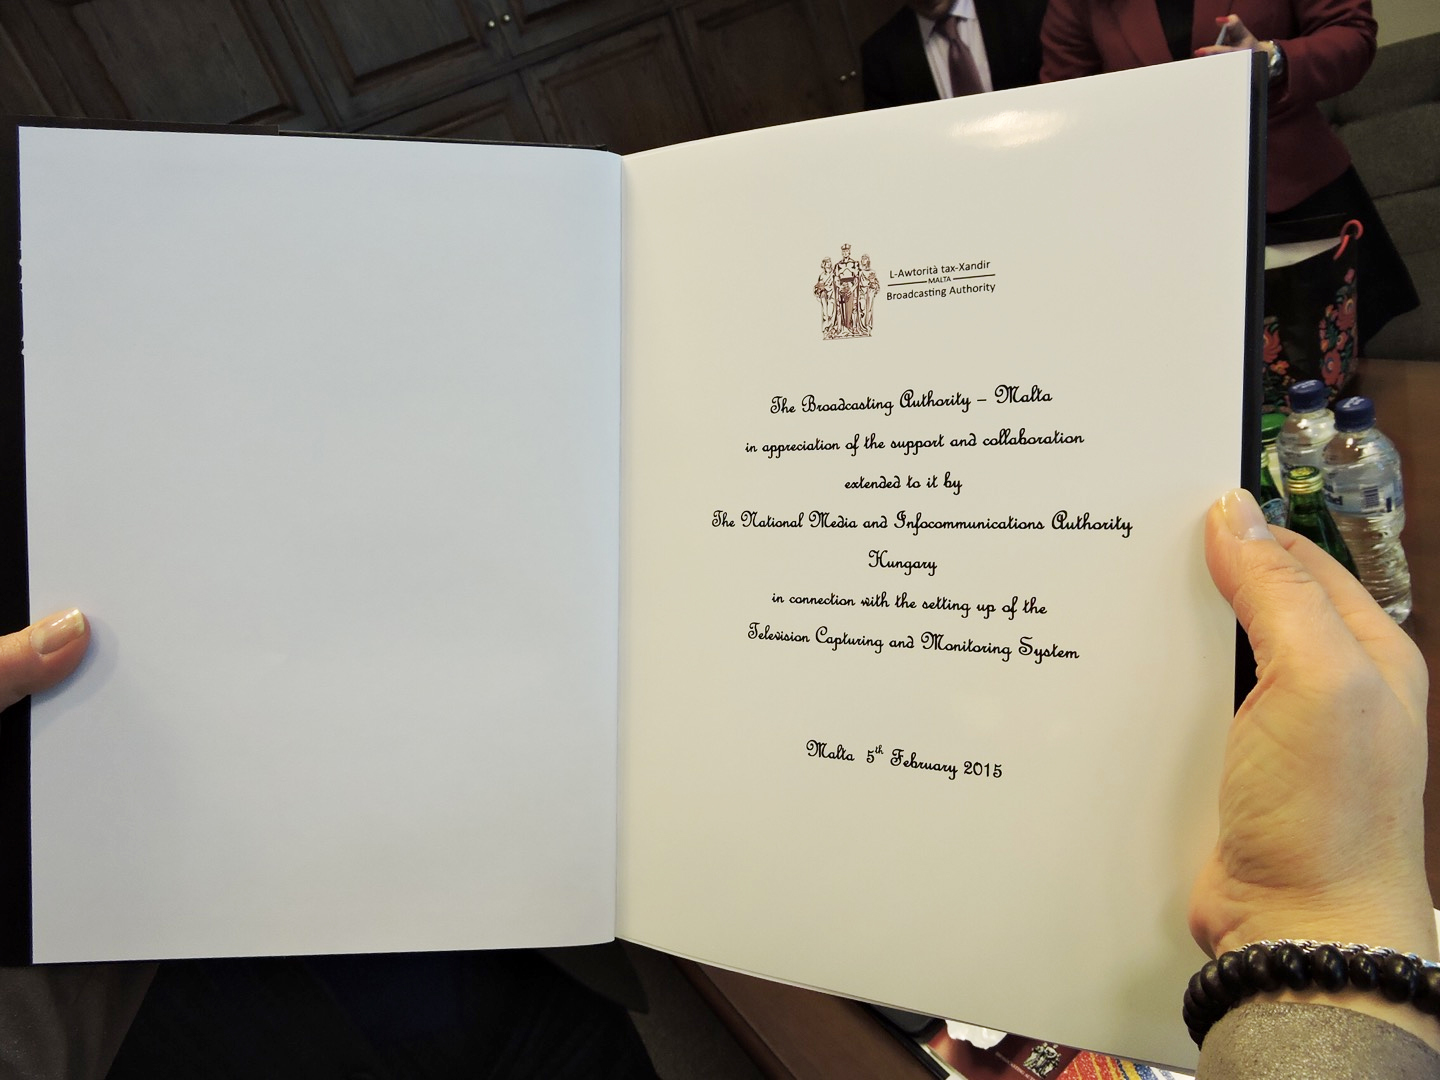 L-Awtorità tax-Xandir
MALTA
Broadcasting Authority
The Broadcasting Authority – Malta
in appreciation of the support and collaboration
extended to it by
The National Media and Infocommunications Authority
Hungary
in connection with the setting up of the
Television Capturing and Monitoring System
Malta 5th February 2015